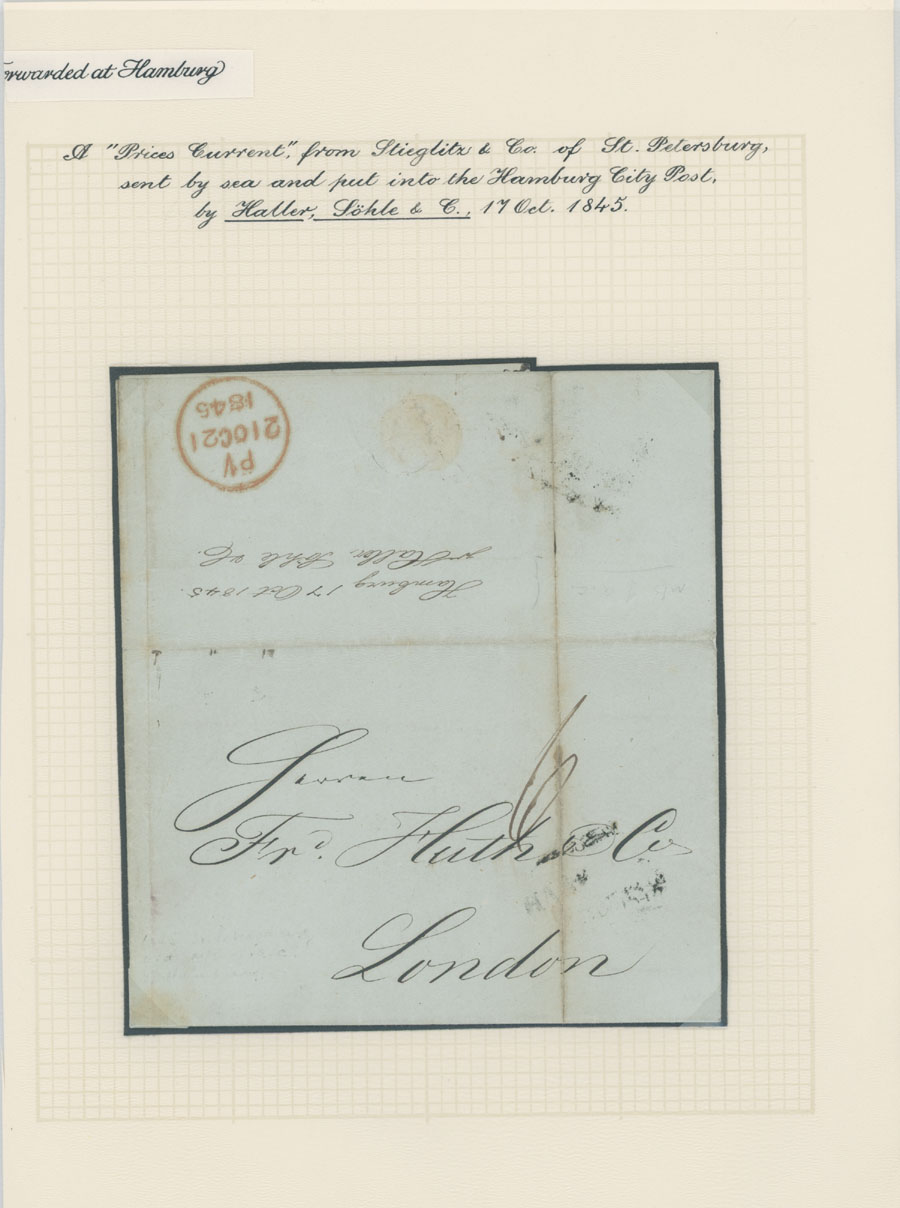 orwarded at Hamburg
A "Prices Current", from Stieglitz & Co. of St. Petersburg,
sent by sea and put into the Hamburg City Post,
by Haller, Söhle & C., 17 Oct. 1845.
PV
21OC21
1845
Hamburg 17 Oct 1845.
pr Haller Söhle & C.
Herren
Frd. Huth & Co
London
6